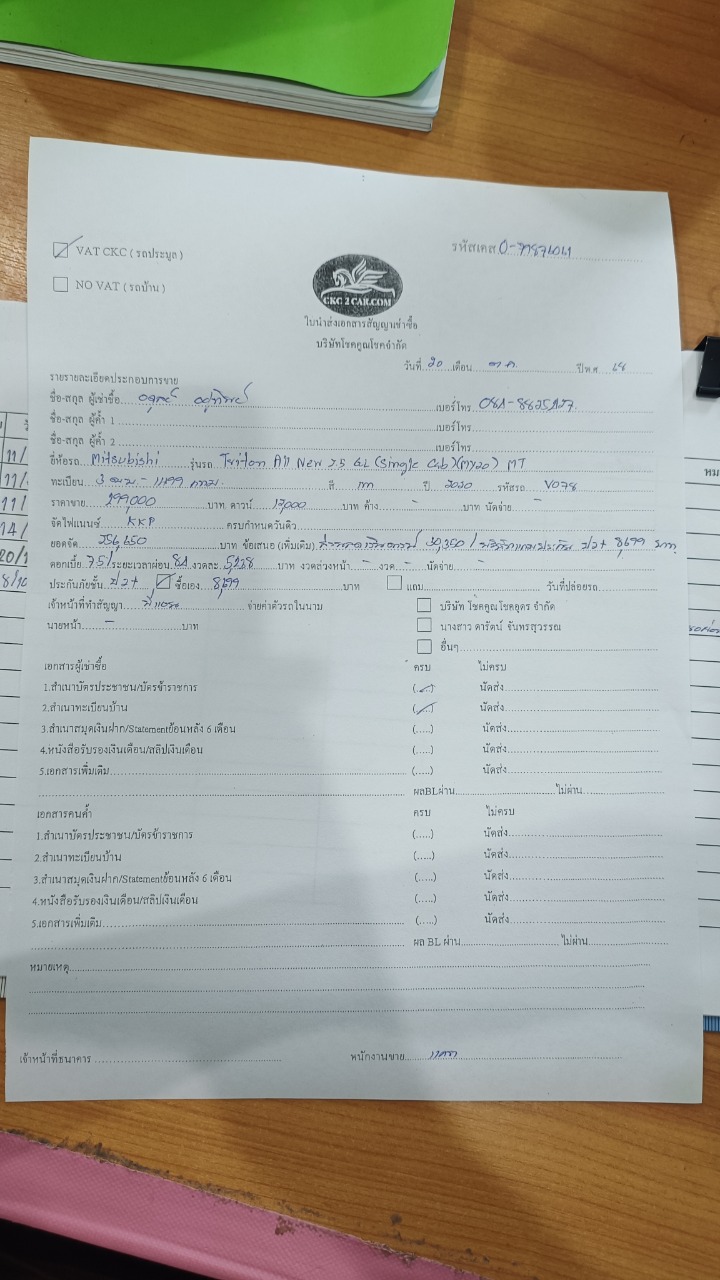 VAT CKC ( รถประมูล )
รหัสเคส
NO VAT ( รถบ้าน )
CKC 2 CAR.COM
ใบนำส่งเอกสารสัญญาเช่าซื้อ
บริษัทโชคคูณโชคจำกัด
วันที่ 20 เดือน ต.ค. ปีพ.ศ. 68
รายรายละเอียดประกอบการขาย
ชื่อ-สกุล ผู้เช่าซื้อ เบอร์โทร
ชื่อ-สกุล ผู้ค้ำ 1 เบอร์โทร
ชื่อ-สกุล ผู้ค้ำ 2 เบอร์โทร
ยี่ห้อรถ Mitsubishi รุ่นรถ Triton All New 2.5 GL (Single Cab)(MY20) MT
ทะเบียน สี ปี 2020 รหัสรถ V078
ราคาขาย 299,000 บาท ดาวน์ บาท ค้าง - บาท นัดจ่าย -
จัดไฟแนนซ์ KKP ครบกำหนดวันดิว
ยอดจัด 256,650 บาท ข้อเสนอ (เพิ่มเติม) 30,350 / ป2+ 8,699 บาท
ดอกเบี้ย 7.5 / ระยะเวลาผ่อน 84 งวดละ บาท งวดล่วงหน้า - งวด - นัดจ่าย -
ประกันภัยชั้น ป2+ ซื้อเอง 8,699 บาท แถม วันที่ปล่อยรถ
เจ้าหน้าที่ทำสัญญา จ่ายค่าตัวรถในนาม บริษัท โชคคูณโชคอุดร จำกัด
นายหน้า - บาท นางสาว ดารัตน์ จันทรสุวรรณ
อื่นๆ
เอกสารผู้เช่าซื้อ ครบ ไม่ครบ
1.สำเนาบัตรประชาชน/บัตรข้าราชการ (.....) นัดส่ง
2.สำเนาทะเบียนบ้าน (.....) นัดส่ง
3.สำเนาสมุดเงินฝาก/Statementย้อนหลัง 6 เดือน (.....) นัดส่ง
4.หนังสือรับรองเงินเดือน/สลิปเงินเดือน (.....) นัดส่ง
5.เอกสารเพิ่มเติม (.....) นัดส่ง
ผลBLผ่าน ไม่ผ่าน
เอกสารคนค้ำ ครบ ไม่ครบ
1.สำเนาบัตรประชาชน/บัตรข้าราชการ (.....) นัดส่ง
2.สำเนาทะเบียนบ้าน (.....) นัดส่ง
3.สำเนาสมุดเงินฝาก/Statementย้อนหลัง 6 เดือน (.....) นัดส่ง
4.หนังสือรับรองเงินเดือน/สลิปเงินเดือน (.....) นัดส่ง
5.เอกสารเพิ่มเติม (.....) นัดส่ง
ผล BL ผ่าน ไม่ผ่าน
หมายเหตุ
เจ้าหน้าที่ธนาคาร พนักงานขาย